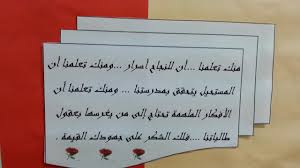 منك تعلمنا ...أن للنجاح أسرار ...ومنك تعلمنا أن
المستحيل يتحقق بمدرستنا ... ومنك تعلمنا أن
الأفكار الملهمة تحتاج إلى من يغرسها بعقول
طالباتنا ...فلك الشكر على جهودك القيمة .